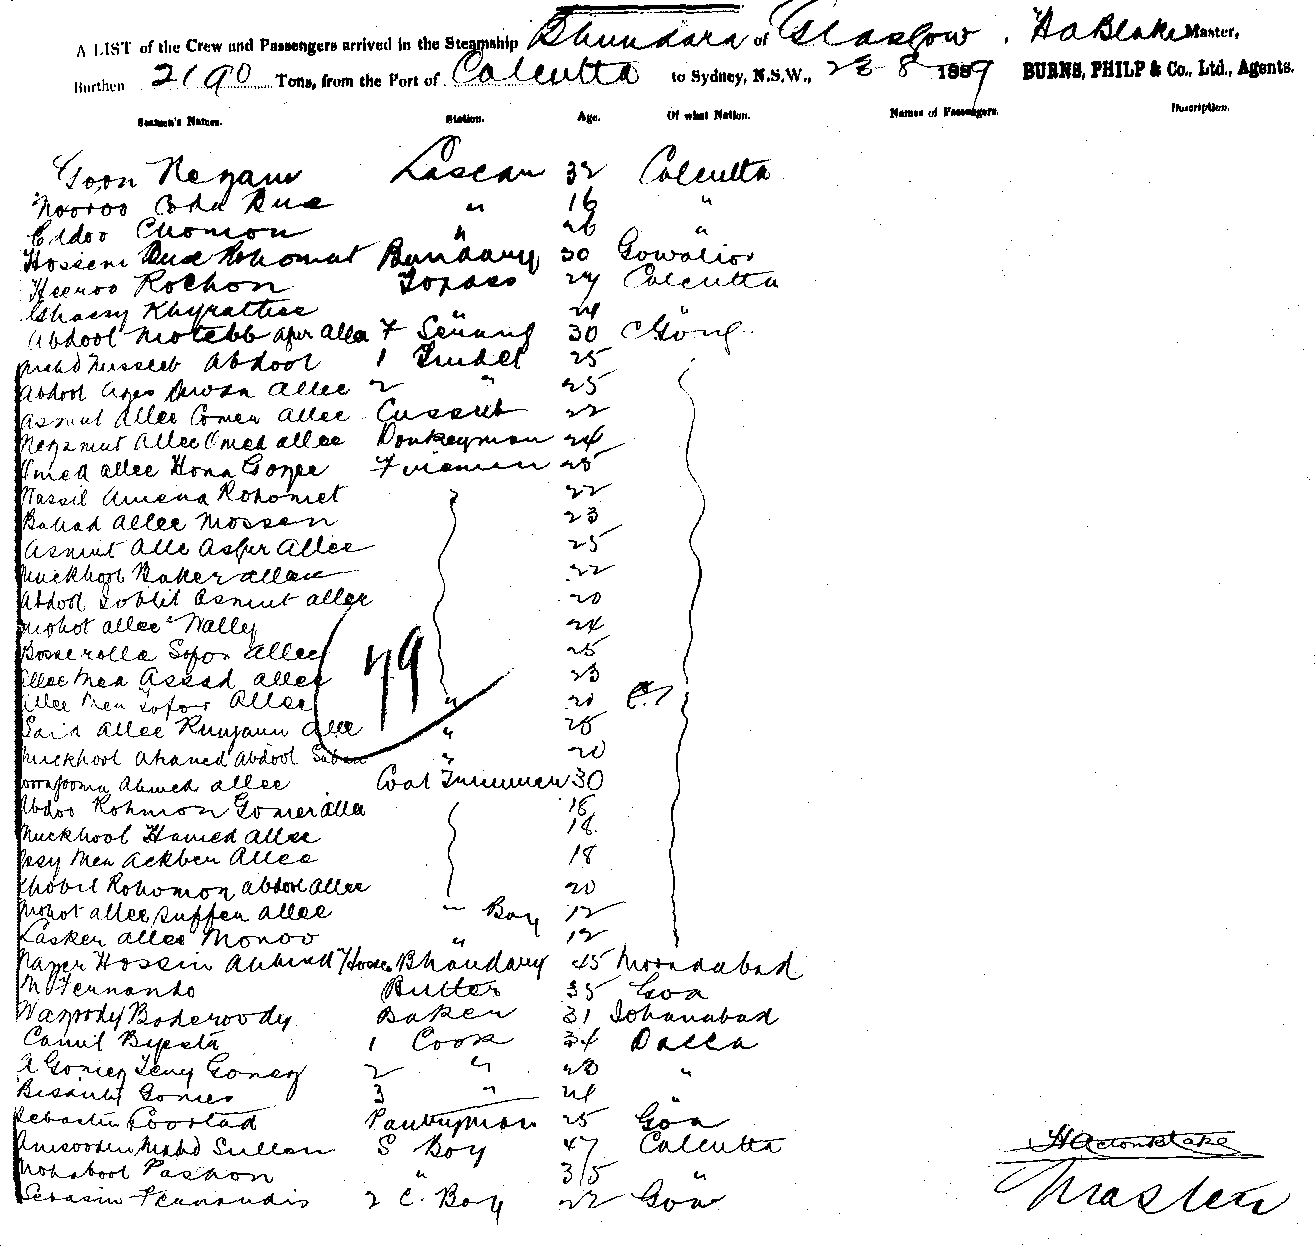 A LIST of the Crew and Passengers arrived in the Steamship Bhundara of Glasgow, HA Blake Master,
Burthen 2190 Tons, from the Port of Calcutta to Sydney, N.S.W., 23 8 1889 BURNS, PHILP & Co., Ltd., Agents.
Seamen's Names. Station. Age. Of what Nation. Names of Passengers. Description.
Goon Nezam Lascar 32 Calcutta
Nooroo Bux " 16 "
Eddoo Chomon " 26 "
Hosseni Bux Rohomut Bundary 30 Gowalior
Heeroo Rochon Topass 27 Calcutta
Ghassy Khyrattee " 24 "
Abdool Motebb Afer Allee F Serang 30
Abdool 1 Tindel 25
Abdool Dewan Allee 2 " 25
Asmut Allee Comer Allee Cussub 22
Nezamut Allee Omed allee Donkeyman 24
Omed allee Hona Gozee Firemen 25
Nassil Amena Rohomet 22
Mossen 23
Asmut Alle Asfur Allee 25
Muckbool Baker allam 22
Abdool Asmut allee 20
Mohot allee Wally 24
Bosserolla Sofor Allee 25
Allee Mea Assad allee 23
Allee Mea Sofor Allee " 20
79
Said Allee Rumjaun Alle " 28
Muckbool Ahamed Abdool " 20
Ahmed allee Coal Trimmer 30
Abdoo Rohmon Gomer alla 18
Muckbool Hamed Allee 18
Mea Ackber Allee 18
Rohomon abdool Allee 20
Mohot allee Suffer allee " Boy 12
Lasker allee Monoo " 12
Nazer Hossin Bhandary 45 Moradabad
M Fernando Butler 35 Goa
Baker 31 Johanabad
Camil 1 Cook 34 Dacca
A Gomez Gomez 2 " 28 "
Gomes 3 " 24
Sebastin Pantryman 25 Goa
Sultan S Boy 47 Calcutta
Mohabool " 35 "
Fernandis 2 C. Boy 22 Goa
H Acton Blake
Master